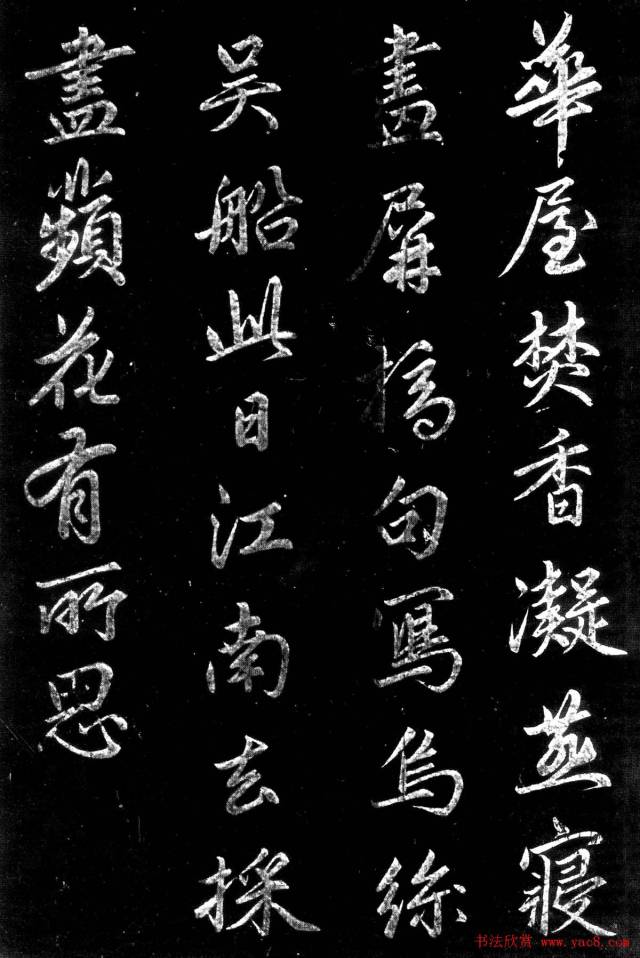 華屋焚香凝燕寢
畫屏摛句寫烏絲
吳船此日江南去採
盡蘋花有所思
书法欣赏 www.yac8.com